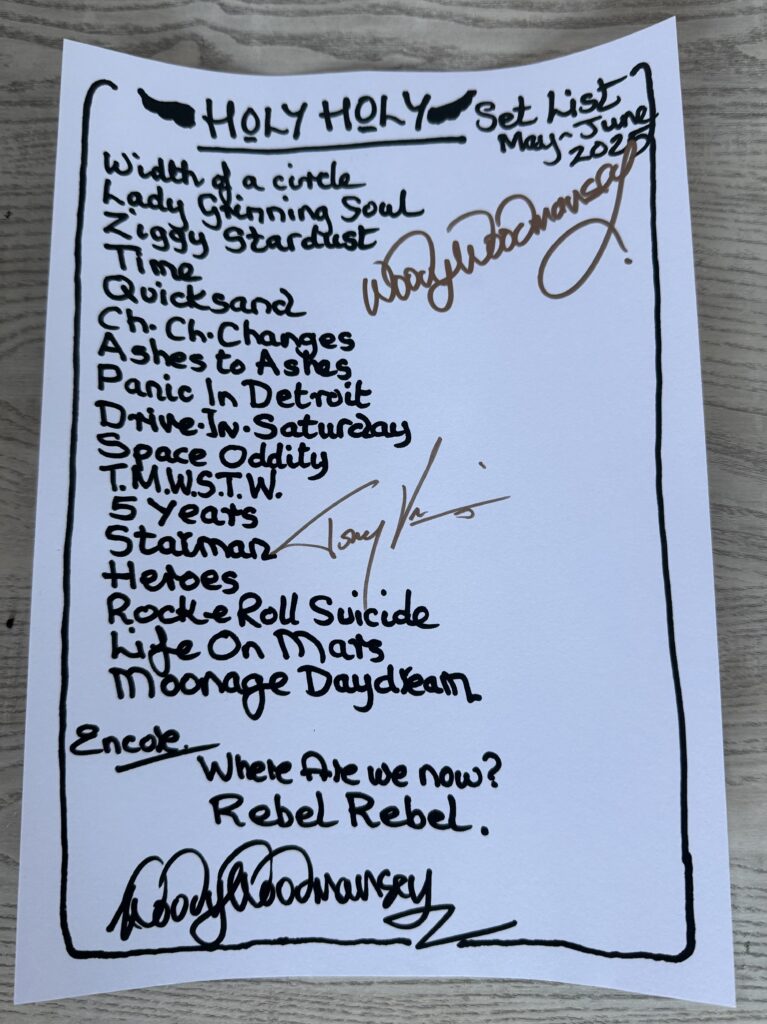 HOLY HOLY
Set List
May-June
2025
Width of a circle
Lady Grinning Soul
Ziggy Stardust
Woody Woodmansey
Time
Quicksand
Ch. Ch. Changes
Ashes to Ashes
Panic In Detroit
Drive-In-Saturday
Space Oddity
T.M.W.S.T.W.
5 Years
Starman
Tony Vis
Heroes
Rock e Roll Suicide
Life On Mars
Moonage Daydream
Encore.
Where Are we now?
Rebel Rebel.
Woody Woodmansey